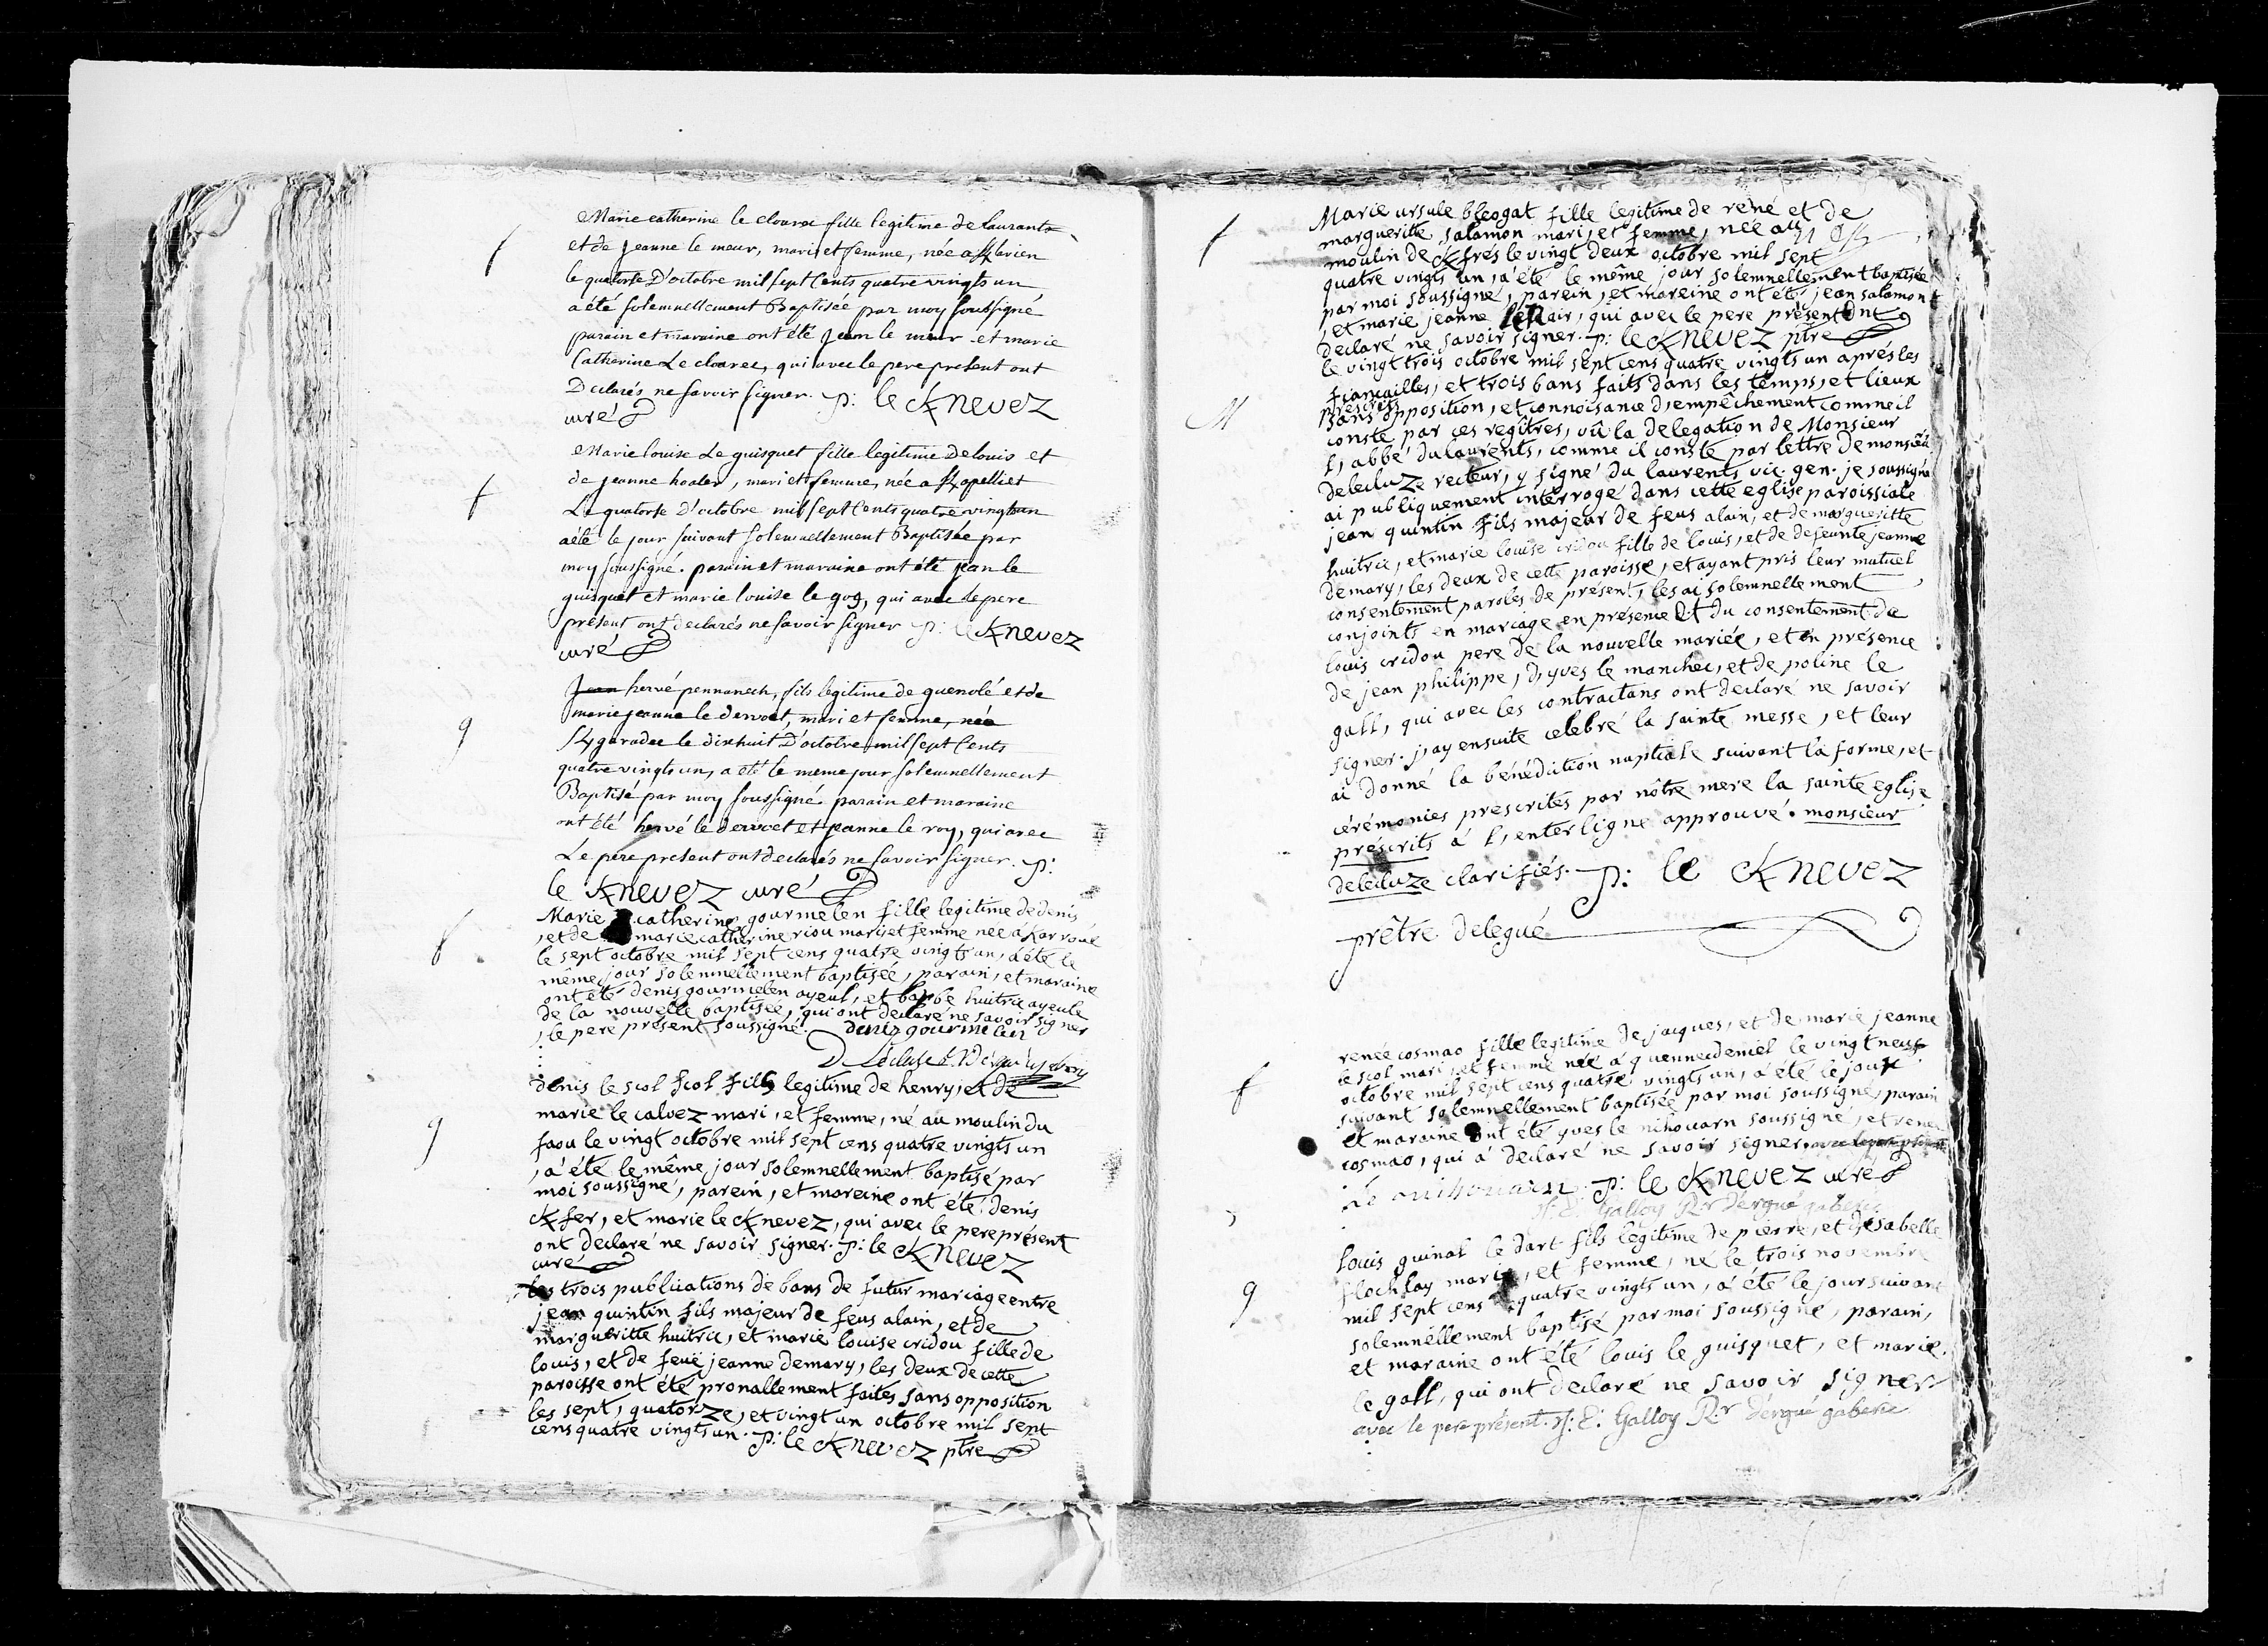 f
Marie catherine le clouarec fille legitime de Laurants
et de jeanne le meur, mari et femme, née a Kbrien
le quatorse D'octobre mil sept Cents quatre vingts un
a été solemnellement Baptisée par moy soussigné
parain et maraine ont été jean le meur et marie
Catherine Le clouarec, qui avec le pere present ont
Declarés ne savoir signer. p: le Knevez
curé
f
Marie louise Le guisquet fille legitime De louis et
de jeanne , mari et femme, née a Kpelliet
Le quatorse D'octobre mil sept Cents quatre vingts un
a été le jour suivant solemnellement Baptisée par
moy soussigné. parain et maraine ont été jean le
guisquet et marie louise le gog, qui avec le pere
présent ont declarés ne savoir signer p: le Knevez
curé
g
Jean hervé pennanech, fils legitime de guenolé et de
marie jeanne le dervoet, mari et femme, née
Kgaradec le dixhuit D'octobre mil sept Cents
quatre vingts un, a été le meme jour solemnellement
Baptisé par moy soussigné parain et maraine
ont été hervé le dervoet et jeanne le roy, qui avec
Le pere present ont declarés ne savoir signer. p:
le Knevez curé
f
Marie catherine gourmelen fille legitime de denis
, et de marie catherine riou mari et femme née a Karroué
le sept octobre mil sept cens quatre vingts un, a été le
même jour solemnellement baptisée, parain, et maraine
ont été denis gourmelen ayeul, et barbe huitric ayeule
de la nouvelle baptisée, qui ont declaré ne savoir signer
, le pere présent soussigné. Denis gourmelen
g
denis le scol scol fils legitime de henry, et de
marie le calvez mari, et femme, né au moulin du
faou le vingt octobre mil sept cens quatre vingts un
, a été le même jour solemnellement baptisé par
moi soussigné, parein, et mareine ont été denis
Kfer, et marie le Knevez, qui avec le pere présent
ont declaré ne savoir signer. p: le Knevez
curé
les trois publications de bans de futur mariage entre
jean quintin fils majeur de feus alain, et de
margueritte huitric, et marie louise cridou fille de
louis, et de feuë jeanne demary, les deux de cette
paroisse ont été pronallement faites sans opposition
les sept, quatorze, et vingt un octobre mil sept
cens quatre vingts un. p: le Knevez ptre
f
Marie ursule bleogat fille legitime de rené et de
margueritte salamon mari, et femme, née au
moulin de Kfrés le vingt deux octobre mil sept
quatre vingts un, a été le même jour solemnellement baptisée
par moi soussigné, parein, et mareine ont été jean salamon
, et marie jeanne , qui avec le pere présent ont
declaré ne savoir signer. p: le Knevez ptre
M
le vingt trois octobre mil sept cens quatre vingts un aprés les
fiançailles, et trois bans faits dans les temps, et lieux
préscrits
sans opposition, et connoisance d'empêchement comme il
conste par ces regîtres, vû la delegation de Monsieur
l'abbé du laurents, comme il conste par lettre de monsieur
delecluze recteur, y signé du laurents vic. gen. je soussigné
ai publiquement intérrogé dans cette eglise paroissiale
jean quintin fils majeur de feus alain, et de margueritte
huitric, et marie louise cridou fille de louis, et de defeunte jeanne
demary, les deux de cette paroisse, et ayant pris leur mutuel
consentement paroles de présent, les ai solemnellement
conjoints en mariage en présence et du consentement de
louis cridou pere de la nouvelle mariée, et en présence
de jean philippe, d'yves le manchec, et de poline le
gall, qui avec les contractans ont declaré ne savoir
signer. j'ay ensuite celebré la sainte messe, et leur
ai donné la bénédiction nuptiale suivant la forme, et
cérémonies prescrites par nôtre mere la sainte eglise
préscrits à l'enterligne approuvé. monsieur
delecluze clarifiés. p: le Knevez
prêtre delegué
f
renée cosmao fille legitime de jacques, et de marie jeanne
le scol mari, et femme née a quennecdeniel le vingt neuf
octobre mil sept cens quatre vingts un, a été le jour
suivant solemnellement baptisée par moi soussigné, parain
et maraine ont été yves le nihouarn soussigné, et renée
cosmao, qui a declaré ne savoir signer avec le pere présent
Le nihouarn p: le Knevez curé
N: E: Galloy Rr dérgué gaberic
g
louis guinal le dart fils legitime de pierre, et d'isabelle
flochlay mari, et femme, né le trois novembre
mil sept cens quatre vingts un, a été le jour suivant
solemnéllement baptisé par moi soussigné, parain,
et maraine ont été louis le guisquet, et marie
le gall, qui ont declaré ne savoir signer
avec le pere présent. N: E: Galloy Rr dérgué gaberic